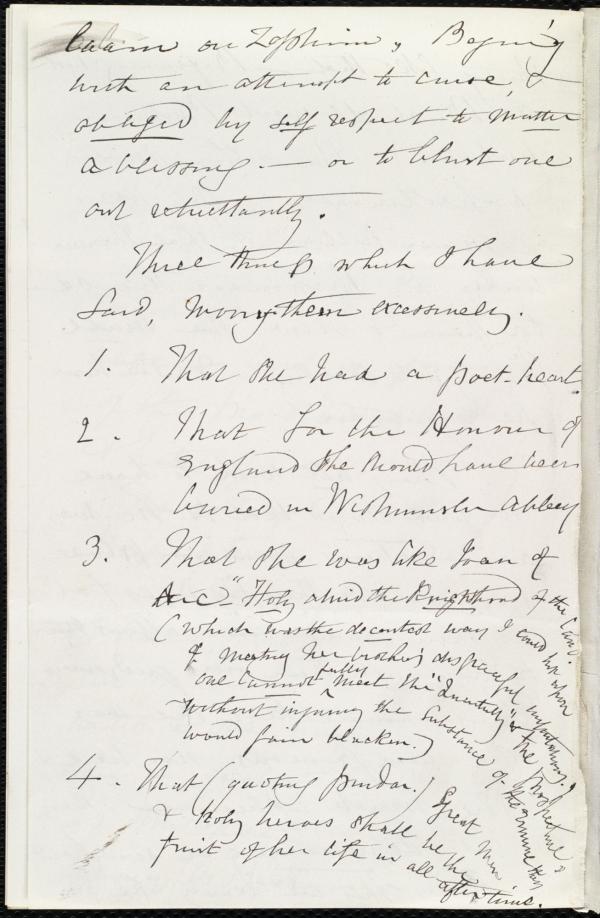 Balaam on Zophim, Begin'g
with an attempt to curse, &
obliged by self respect to mutter
a blessing. — or to blurt one
out reluctantly.
Three things which I have
said, worry them excessively.
1. That she had a poet-heart
2. That for the Honour of
England she should have been
buried in Westminster Abbey
3. That she was like Joan of
Arc - "Holy amid the Knighthood of the Land.
(which was the decentest way I could hit upon
of meeting her brother's disgraceful imputations.
one cannot fully meet the "Quarterly" & the Prospective's
without injuring the substance of the ermine they
would fain blacken.)
4. That (quoting Pindar.) Great Men
& Holy heroes shall be the
fruit of her life in all after times.